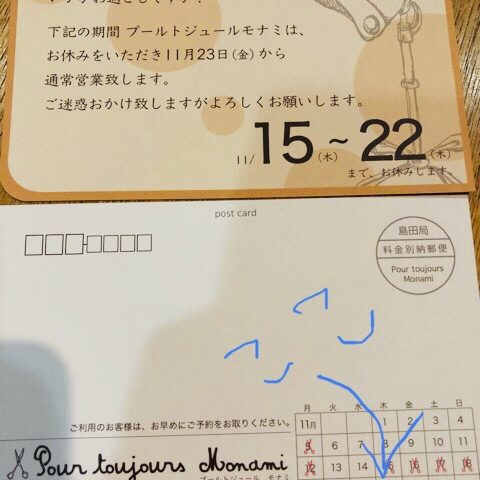 下記の期間 プールトジュールモナミは、
お休みをいただき11月23日(金)から
通常営業致します。
ご迷惑おかけ致しますがよろしくお願いします。
11/15(木)~22(木)
まで、お休みします。
post card
島田局
料金別納郵便
Pour toujours
Monami
ご利用のお客様は、お早めにご予約をお取りください。
Pour toujours Monami
プールトジュール モナミ
月 火 水 木 金 土 日
11月 1 2 3 4
6 7 8 9 10 11
12 13 14 15 16 17 18